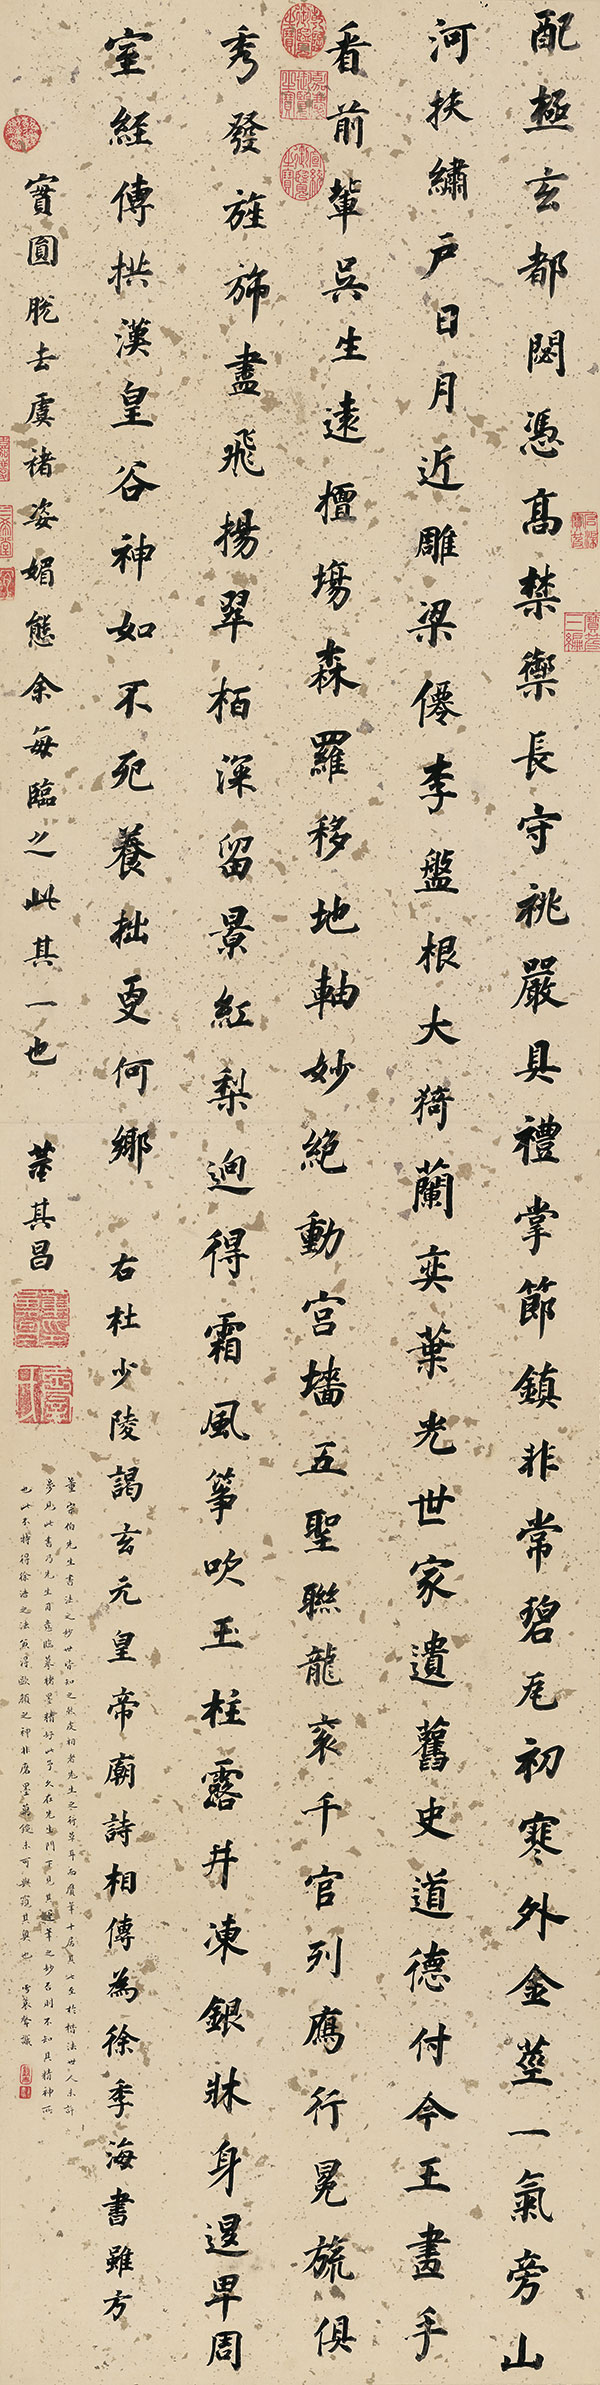 配極玄都閟憑高禁禦長守祧嚴具禮掌節鎮非常碧瓦初寒外金莖一氣旁山
河扶繡戶日月近雕梁僊李盤根大猗蘭奕葉光世家遺舊史道德付今王畫手
看前輩吳生遠擅場森羅移地軸妙絕動宮墻五聖聯龍袞千官列鴈行冕旒俱
秀發旌旆盡飛揚翠栢深留景紅梨迥得霜風箏吹玉柱露井凍銀牀身退卑周
室經傳拱漢皇谷神如不死養拙更何鄉 右杜少陵謁玄元皇帝廟詩相傳為徐季海書雖方
實圓脫去虞褚姿媚態余每臨之此其一也 董其昌
董宗伯先生書法之妙世皆知之